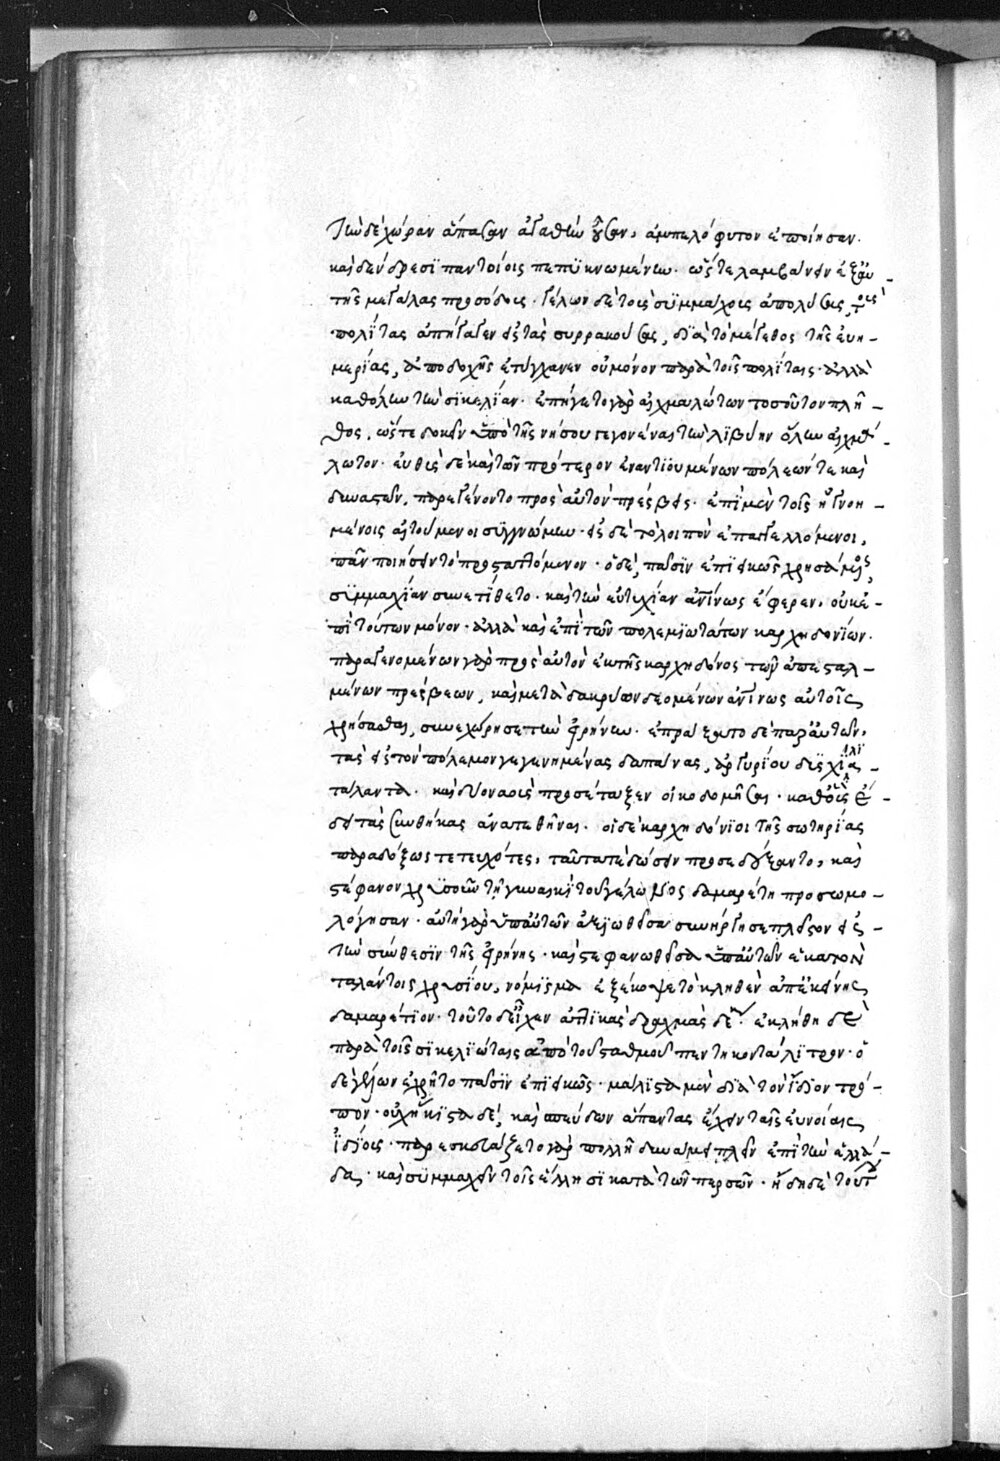 τὴν δὲ χώραν ἅπασαν ἀγαθὴν οὖσαν, ἀμπελόφυτον ἐποίησαν.
καὶ δένδρεσι παντοίοις πεπυκνωμένην. ὥστε λαμβάνειν ἐξ αὐ-
τῆς μεγάλας προσόδους. γέλων δὲ τοὺς συμμάχους ἀπολύσας, τοὺς
πολίτας ἀπήγαγεν εἰς τὰς συρρακούσας, διὰ τὸ μέγεθος τῆς εὐη-
μερίας, ἀποδοχῆς ἐτύγχανεν οὐ μόνον παρὰ τοῖς πολίταις. ἀλλὰ
καθ' ὅλην τὴν σικελίαν. ἐπήγετο γὰρ αἰχμαλώτων τοσοῦτον πλῆ-
θος, ὥστε δοκεῖν ὑπὸ τῆς νήσου γεγονέναι τὴν λιβύην ὅλην αἰχμά-
λωτον. εὐθὺς δὲ καὶ τῶν πρότερον ἐναντιουμένων πόλεών τε καὶ
δυναστῶν, παρεγένοντο πρὸς αὐτὸν πρέσβεις. ἐπὶ μὲν τοῖς ἠγνοη-
μένοις αἰτούμενοι συγγνώμην. εἰς δὲ τὸ λοιπὸν ἐπαγγελλόμενοι,
πᾶν ποιήσειν τὸ προσταττόμενον. ὁ δὲ, πᾶσιν ἐπιεικῶς χρησάμενος,
συμμαχίαν συνετίθετο. καὶ τὴν εὐτυχίαν ἀνθρωπίνως ἔφερεν, οὐκ ἐ-
πὶ τούτων μόνον. ἀλλὰ καὶ ἐπὶ τῶν πολεμιωτάτων καρχηδονίων.
παραγενομένων γὰρ πρὸς αὐτὸν ἐκ τῆς καρχηδόνος τῶν ἀπεσταλ-
μένων πρέσβεων, καὶ μετὰ δακρύων δεομένων ἀνθρωπίνως αὐτοῖς
χρήσασθαι, συνεχώρησε τὴν εἰρήνην. ἐπράξατο δὲ παρ' αὐτῶν,
τὰς εἰς τὸν πόλεμον γεγενημένας δαπάνας, ἀργυρίου δισχίλια
τάλαντα. καὶ δύο ναοὺς προσέταξεν οἰκοδομῆσαι. καθ' οὓς ἔ-
δει τὰς συνθήκας ἀνατεθῆναι. οἱ δὲ καρχηδόνιοι τῆς σωτηρίας
παραδόξως τετευχότες, ταῦτά τε δώσειν προσεδέξαντο, καὶ
στέφανον χρυσοῦν τῇ γυναικὶ τοῦ γέλωνος δαμαρέτη προσωμο-
λόγησαν. αὕτη γὰρ ὑπ' αὐτῶν ἀξιωθεῖσα συνήργησε πλεῖστον εἰς
τὴν σύνθεσιν τῆς εἰρήνης. καὶ στεφανωθεῖσα ὑπ' αὐτῶν ἑκατὸν
ταλάντοις χρυσίου, νόμισμα ἐξέκοψε τὸ κληθὲν ἀπ' ἐκείνης
δαμαρέτιον. τοῦτο δ' εἶχεν ἀττικὰς δραχμὰς δέκα. ἐκλήθη δὲ
παρὰ τοῖς σικελιώταις ἀπὸ τοῦ σταθμοῦ πεντηκοντάλιτρον. ὁ
δὲ γέλων ἐχρῆτο πᾶσιν ἐπιεικῶς. μάλιστα μὲν διὰ τὸν ἴδιον τρό-
πον. οὐχ ἥκιστα δὲ, καὶ σπεύδων ἅπαντας ἔχειν ταῖς εὐνοίαις
ἰδίους. παρεσκευάζετο γὰρ πολλῇ δυνάμει πλεῖν ἐπὶ τὴν ἑλλά-
δα, καὶ συμμαχεῖν τοῖς ἕλλησι κατὰ τῶν περσῶν. ἤδη δὲ τούτου